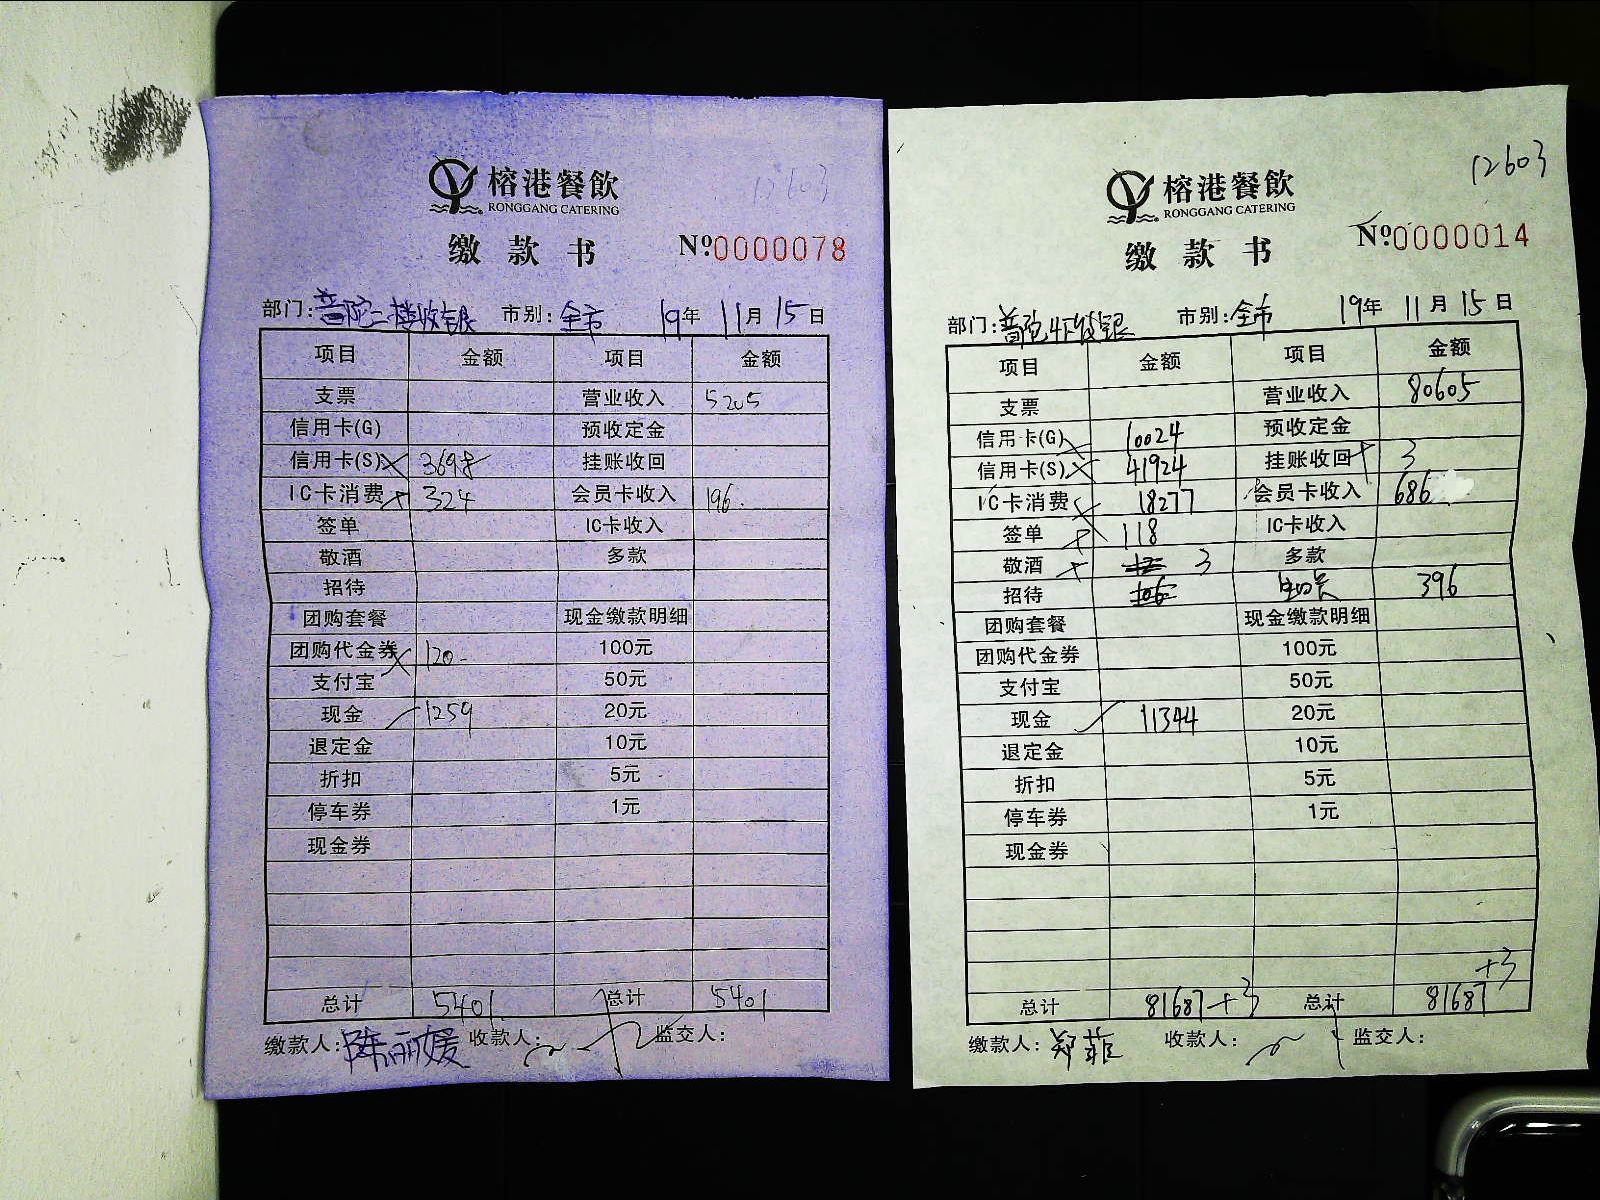 12603
榕港餐飲
RONGGANG CATERING
缴款书 №0000078
部门:普陀二楼收银 市别:全市 19年 11月 15日
项目 金额 项目 金额
支票 营业收入 5205
信用卡(G) 预收定金
信用卡(S) 3698 挂账收回
IC卡消费 324 会员卡收入 196.
签单 IC卡收入
敬酒 多款
招待
团购套餐 现金缴款明细
团购代金券 120- 100元
支付宝 50元
现金 1259 20元
退定金 10元
折扣 5元
停车券 1元
现金券
总计 5401. 总计 5401
缴款人:陈丽媛 收款人: 监交人:
12603
榕港餐飲
RONGGANG CATERING
缴款书 №0000014
部门:普陀 收银 市别:全市 19年 11月 15日
项目 金额 项目 金额
支票 营业收入 80605
信用卡(G) 10024 预收定金
信用卡(S) 41924 挂账收回 3
IC卡消费 18277 会员卡收入 686
签单 118 IC卡收入
敬酒 3 多款
招待 396
团购套餐 现金缴款明细
团购代金券 100元
支付宝 50元
现金 11344 20元
退定金 10元
折扣 5元
停车券 1元
现金券
+3
总计 81687+3 总计 81687
缴款人:郑菲 收款人: 监交人: